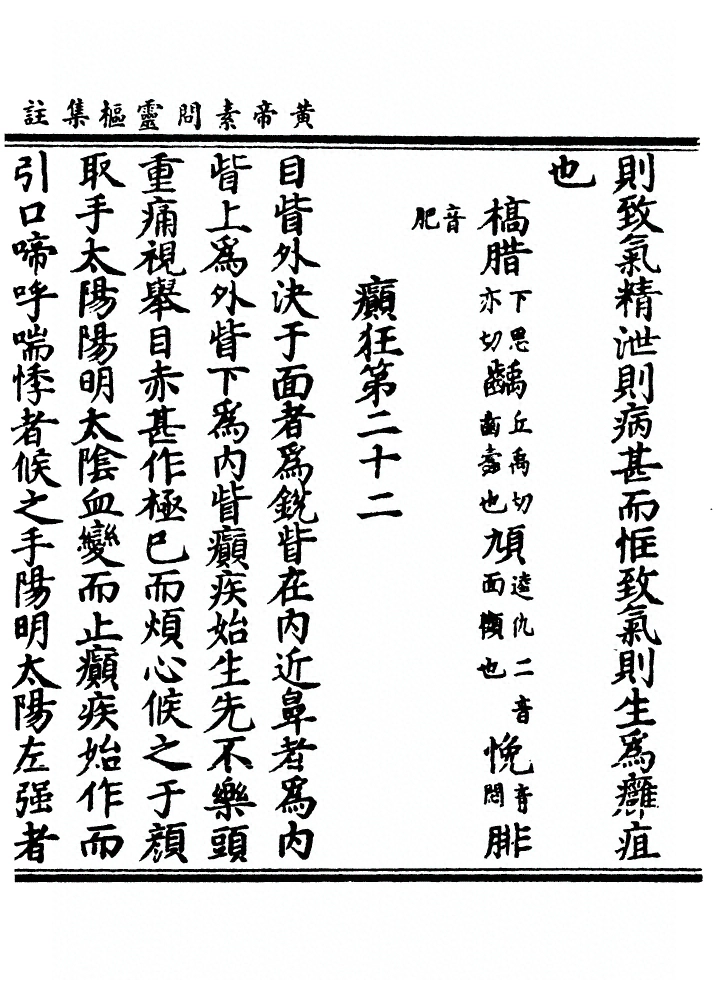 黃帝素問靈樞集註
則致氣精泄則病甚而恇致氣則生爲癰疽
也
槁腊下思亦切齲丘禹切齒蠹也頄逵仇二音面顴也悗音悶腓
音肥
癲狂第二十二
目眥外決于面者爲銳眥在內近鼻者爲內
眥上爲外眥下爲內眥癲疾始生先不樂頭
重痛視舉目赤甚作極已而煩心候之于顔
取手太陽陽明太陰血變而止癲疾始作而
引口啼呼喘悸者候之手陽明太陽左强者